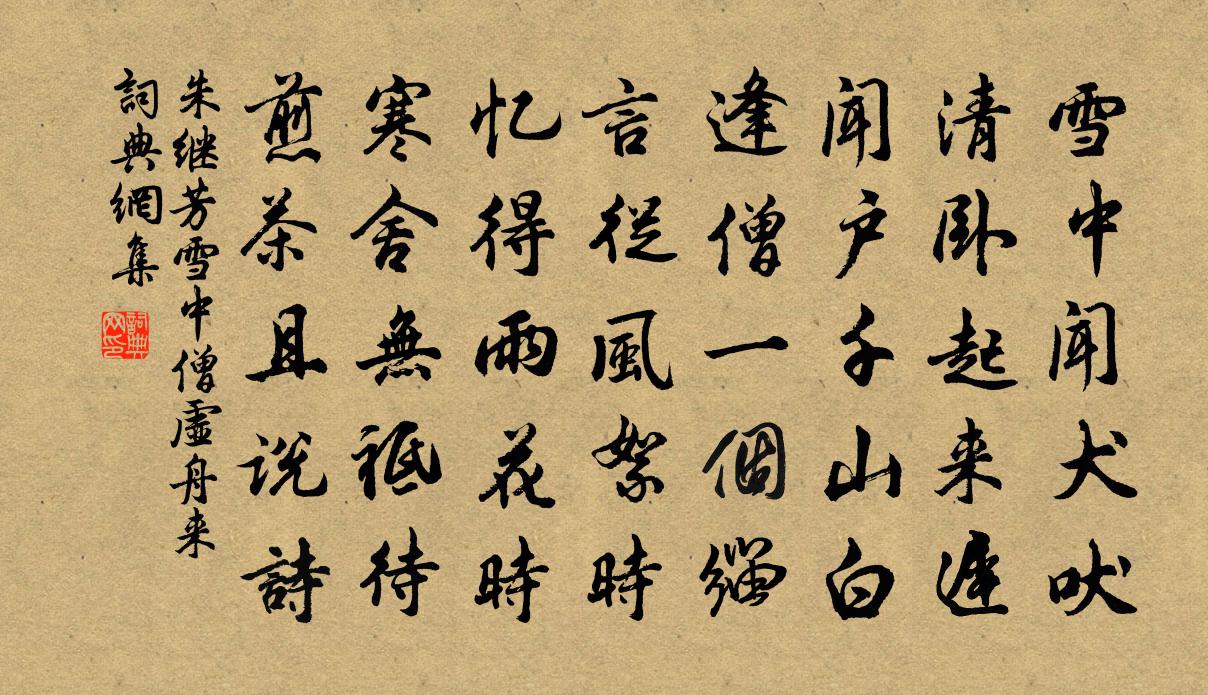 雪中闻犬吠
清卧起来遲
闻户千山白
逢僧一個緇
言從風絮時
忆得雨花時
寒舍無祗待
煎茶且说詩
朱继芳雪中僧虛舟来
詞典網集
詞典网印